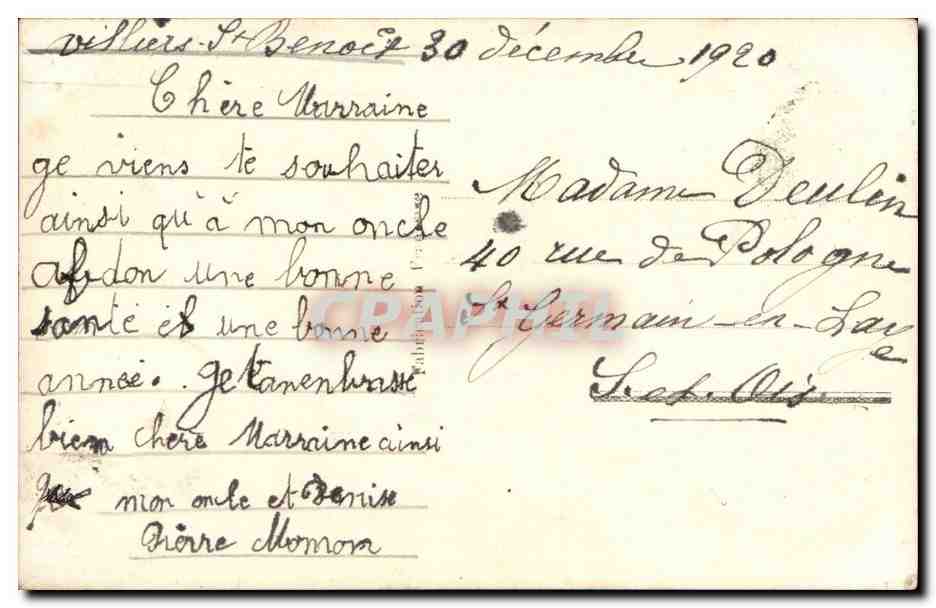 Villiers-St Benoit 30 décembre 1920
Chère Marraine
ge viens te souhaiter
ainsi qu'à mon oncle
abdon une bonne
santé et une bonne
année. ge tanenbrasse
bien chère Marraine ainsi
que mon oncle et Denise
Pierre Momon
Madame Deulin
40 rue de Pologne
St Germain-en-Laye
S. et. Ois.
Fabrication
CRAPHIL